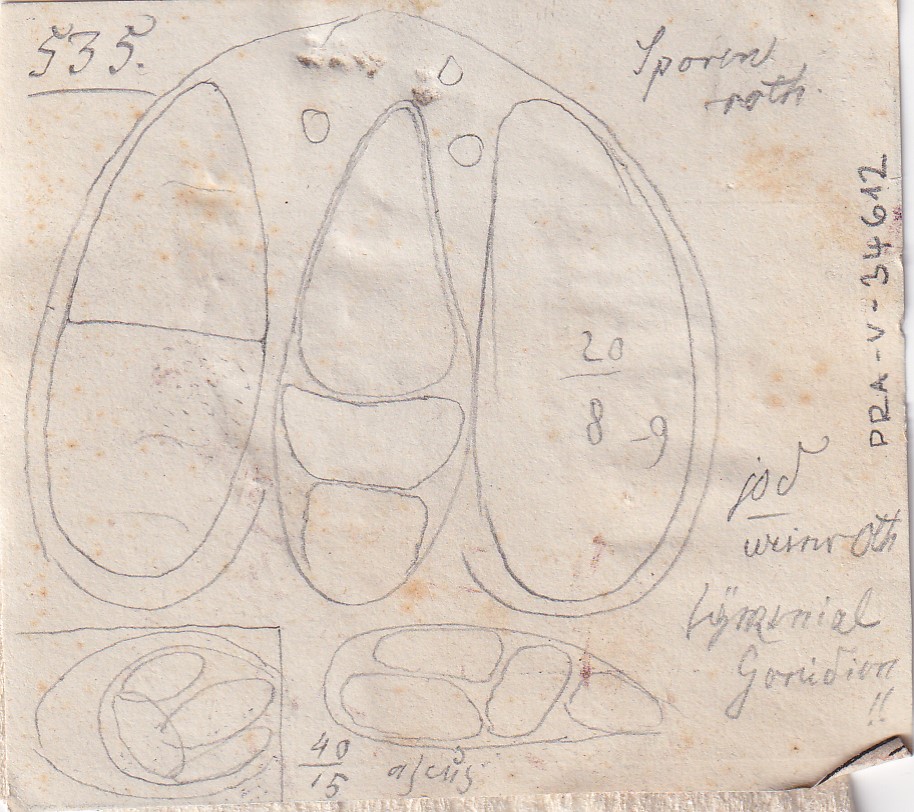 535.
Sporen
roth.
PRA-V-34612
20
8-9
jod
weinroth
Hymenial
Gonidien
!!
40
15
ascus